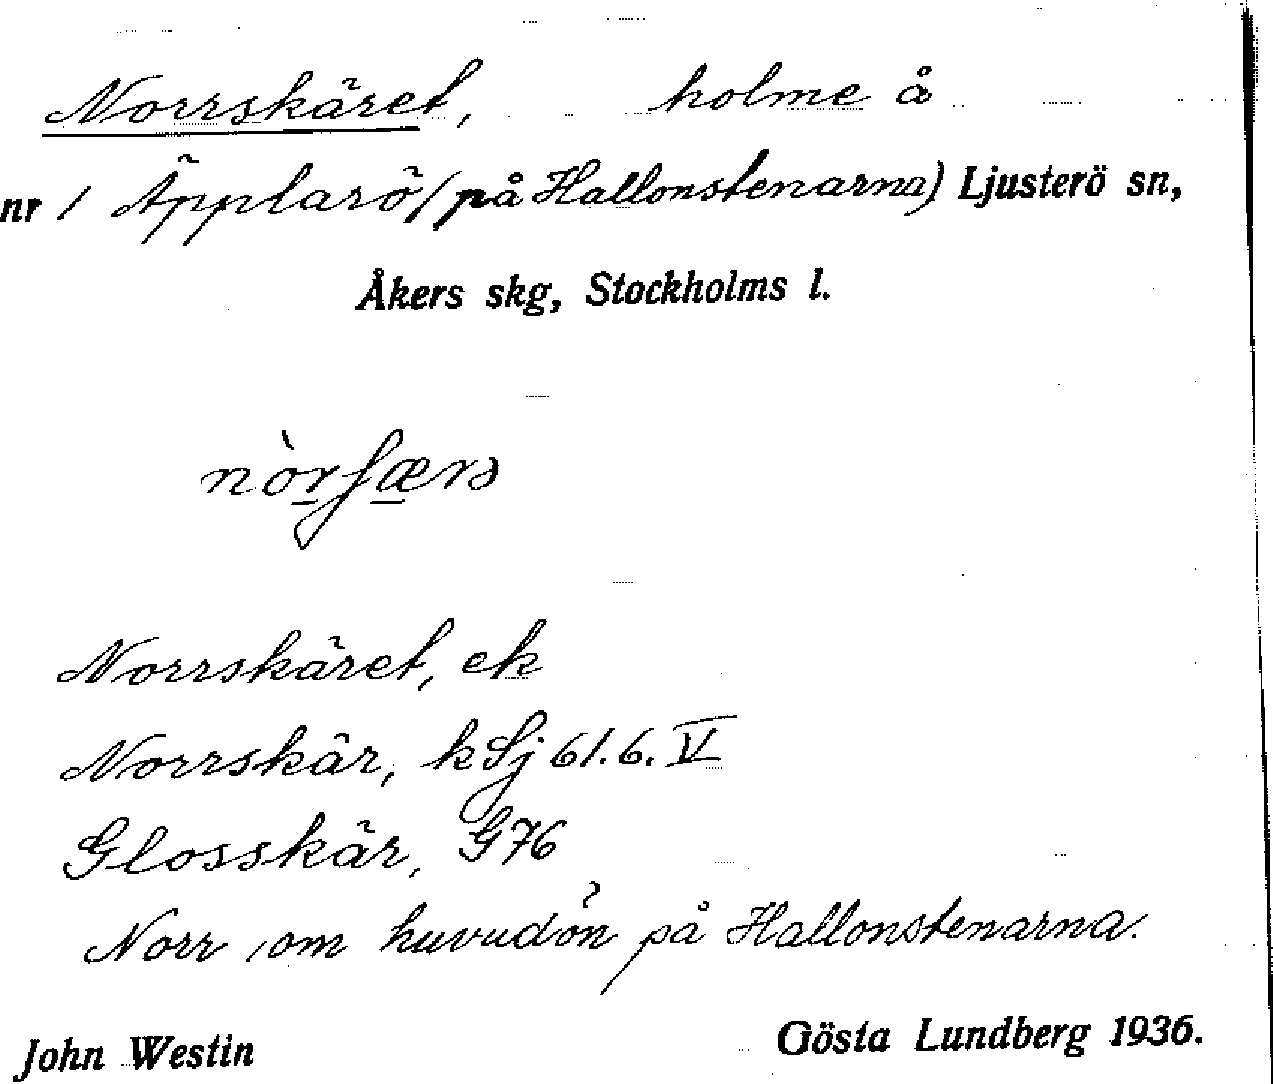 Norrskäret, holme å
nr 1 Äpplarö (på Hallonstenarna) Ljusterö sn,
Åkers skg, Stockholms l.
Norrskäret, ek
Norrskär, k Sj 61.6.V
Glosskär, G76
Norr om huvudön på Hallonstenarna.
John Westin Gösta Lundberg 1936.